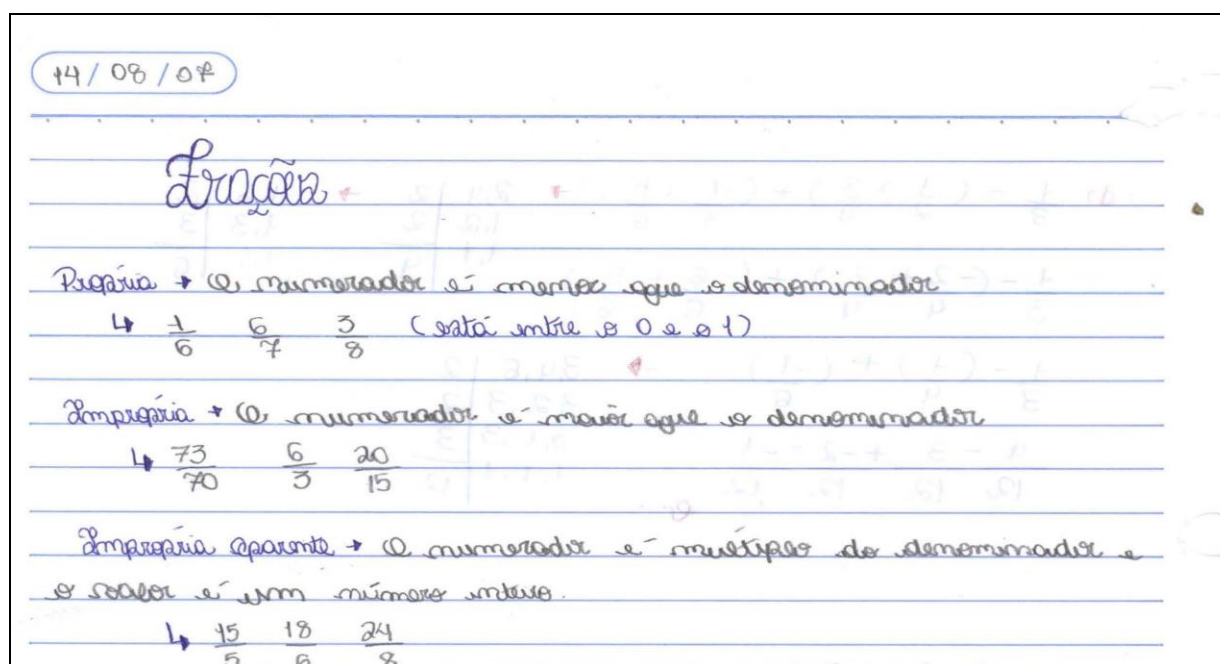 14/08/07
Frações
Própria → O numerador é menor que o denominador
↳ 1/6 6/7 3/8 (está entre o 0 e o 1)
Imprópria → O numerador é maior que o denominador
↳ 73/70 6/3 20/15
Imprópria aparente → O numerador é múltiplo do denominador e
o valor é um número inteiro.
↳ 15/5 18/6 24/8